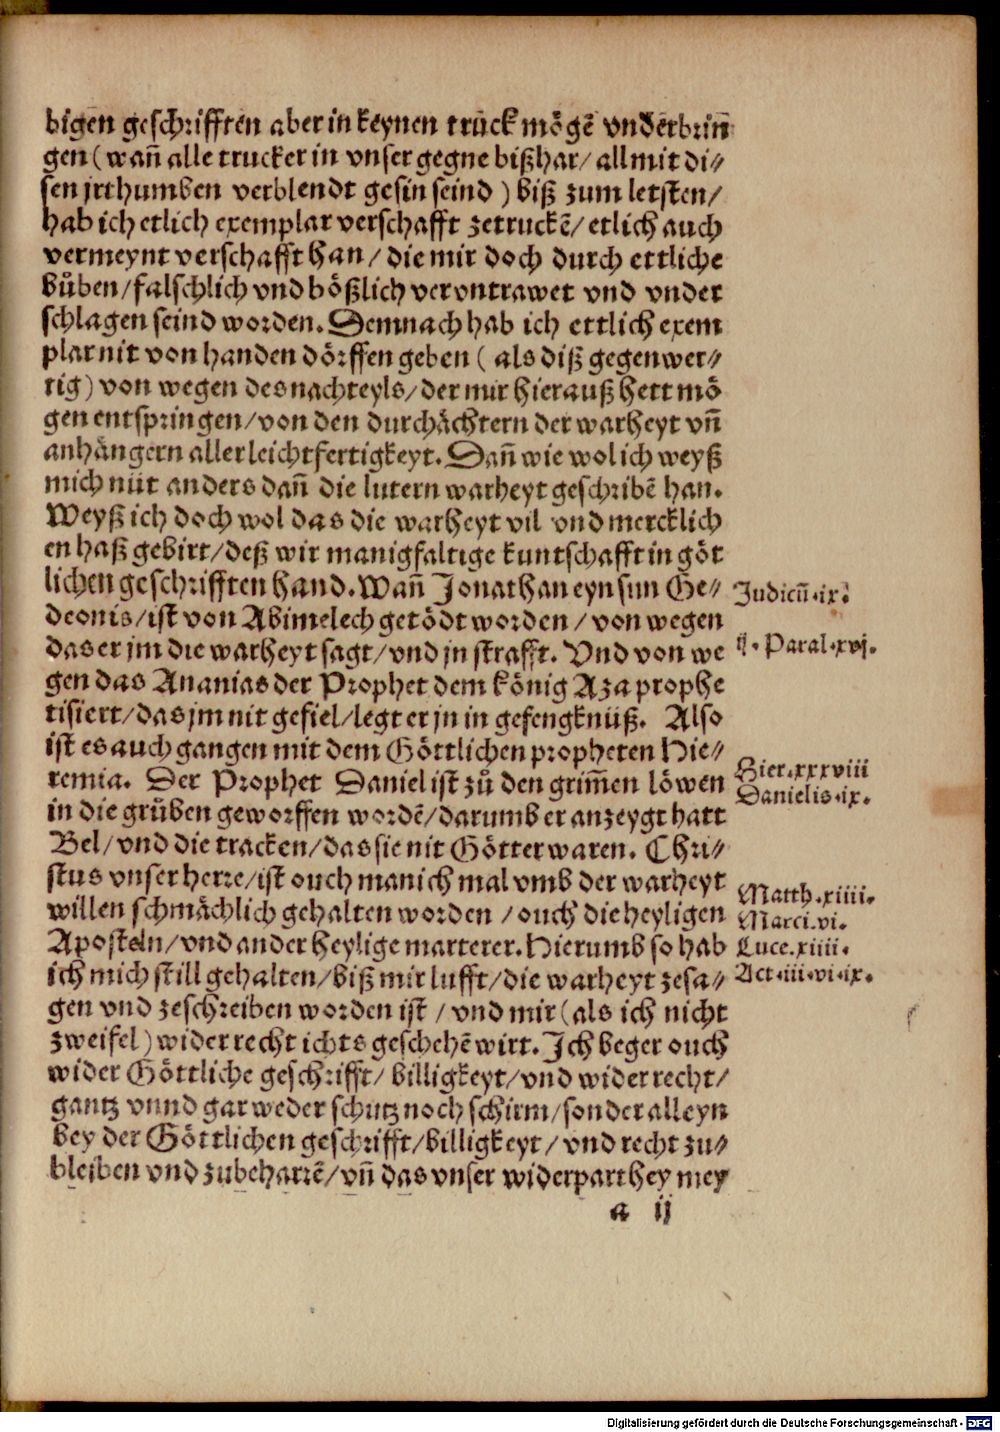 bigen geschrifften aber in keynen truck mögē vnderbrin̄
gen (wañ alle trucker in vnser gegne bißhar / all mit di⸗
sen jrthumben verblendt gesin seind) biß zum letsten /
hab ich etlich exemplar verschafft zetruckē / etlich auch
vermeynt verschafft han / die mir doch durch ettliche
bůben / falschlich vnd bößlich verontrawet vnd vnder
schlagen seind worden. Demnach hab ich ettlich exem
plar nit von handen dörffen geben (als diß gegenwer⸗
tig) von wegen des nachteyls / der mir hierauß hett mö
gen entspringen / von den durchächtern der warheyt vñ
anhängern aller leichtfertigkeyt. Dañ wie wol ich weyß
mich nüt anders dañ die lutern warheyt geschribē han.
Weyß ich doch wol das die warheyt vil vnd mercklich
en haß gebirt / deß wir manigfaltige kuntschafft in göt
lichen geschrifften hand. Wañ Jonathan eyn sun Ge⸗
deonis / ist von Abimelech getödt worden / von wegen
das er jm die warheyt sagt / vnd jn strafft. Vnd von we
gen das Ananias der Prophet dem könig Aza prophe
tisiert / das jm nit gefiel / legt er jn in gefengknüß. Also
ist es auch gangen mit dem Göttlichen propheten Hie⸗
remia. Der Prophet Daniel ist zů den grim̄en löwen
in die grůben geworffen wordē / darumb er anzeygt hatt
Bel / vnd die tracken / das sie nit Götter waren. Chri⸗
stus vnser herre / ist ouch manich mal vmb der warheyt
willen schmächlich gehalten worden / ouch die heyligen
Aposteln / vnd ander heylige marterer. Hierumb so hab
ich mich still gehalten / biß mir lufft / die warheyt zesa⸗
gen vnd zeschreiben worden ist / vnd mir (als ich nicht
zweifel) wider recht ichts geschehē wirt. Ich beger ouch
wider Göttliche geschrifft / billigkeyt / vnd wider recht /
gantz vnnd gar weder schutz noch schirm / sonder alleyn
bey der Göttlichen geschrifft / billigkeyt / vnd recht zu⸗
bleiben vnd zubeharrē / vñ das vnser widerparthey mey
a ij
Judicū. ix.
ij. Paral. xvj.
Hier. xxxviii
Danielis. ix.
Matth. xiiii.
Marci. vi.
Luce. xiiii.
Act. iii. vi. ix.
Digitalisierung gefördert durch die Deutsche Forschungsgemeinschaft - DFG